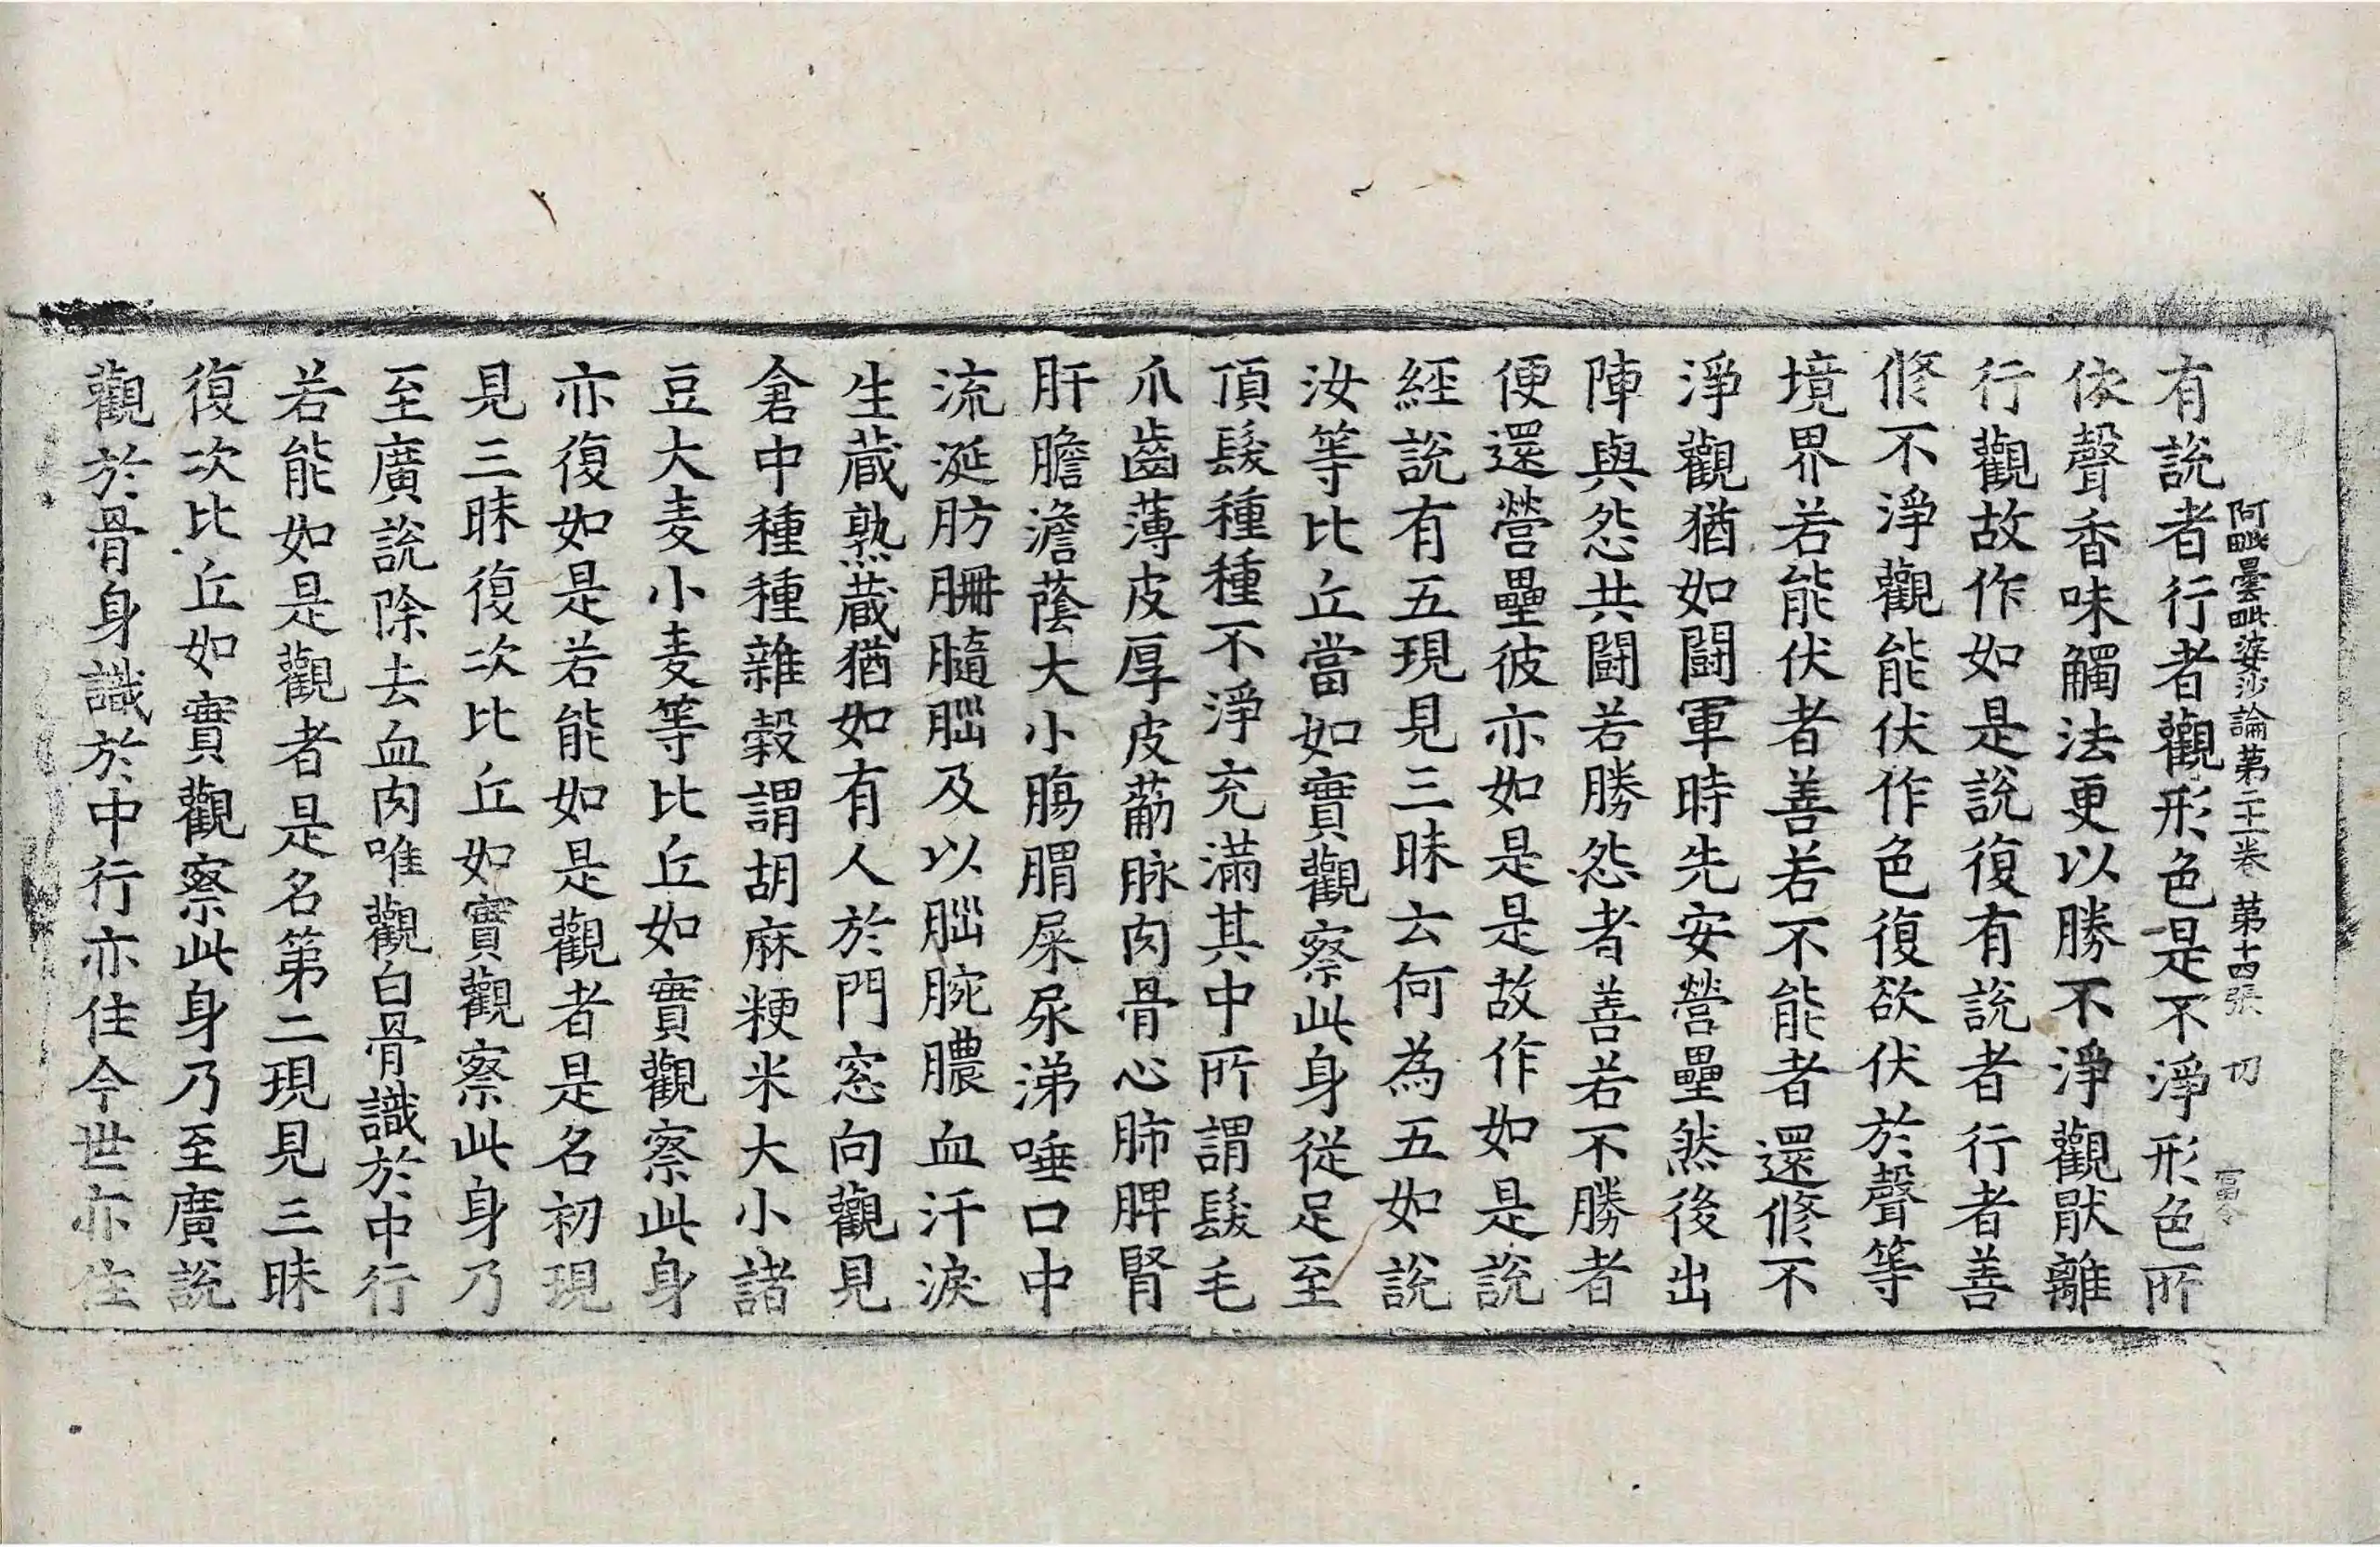 阿毗曇毗婆沙論第二十一卷 第十四張 切
有說者行者觀形色是不淨形色所
依聲香味觸法更以勝不淨觀猒離
行觀故作如是說復有說者行者善
修不淨觀能伏作色復欲伏於聲等
境界若能伏者善若不能者還修不
淨觀猶如闘軍時先安營壘然後出
陣與怨共闘若勝怨者善若不勝者
便還營壘彼亦如是是故作如是說
經說有五現見三昧云何為五如說
汝等比丘當如實觀察此身從足至
頂髮種種不淨充滿其中所謂髮毛
爪齒薄皮厚皮䈥脉肉骨心肺脾腎
肝膽澹蔭大小腸胃屎尿涕唾口中
流涎肪䏬髓腦及以腦腕膿血汗淚
生蔵熟蔵猶如有人於門窓向觀見
倉中種種雜穀謂胡麻粳米大小諸
豆大麦小麦等比丘如實觀察此身
亦復如是若能如是觀者是名初現
見三昧復次比丘如實觀察此身乃
至廣說除去血肉唯觀白骨識於中行
若能如是觀者是名第二現見三昧
復次比丘如實觀察此身乃至廣說
觀於骨身識於中行亦住今世亦住